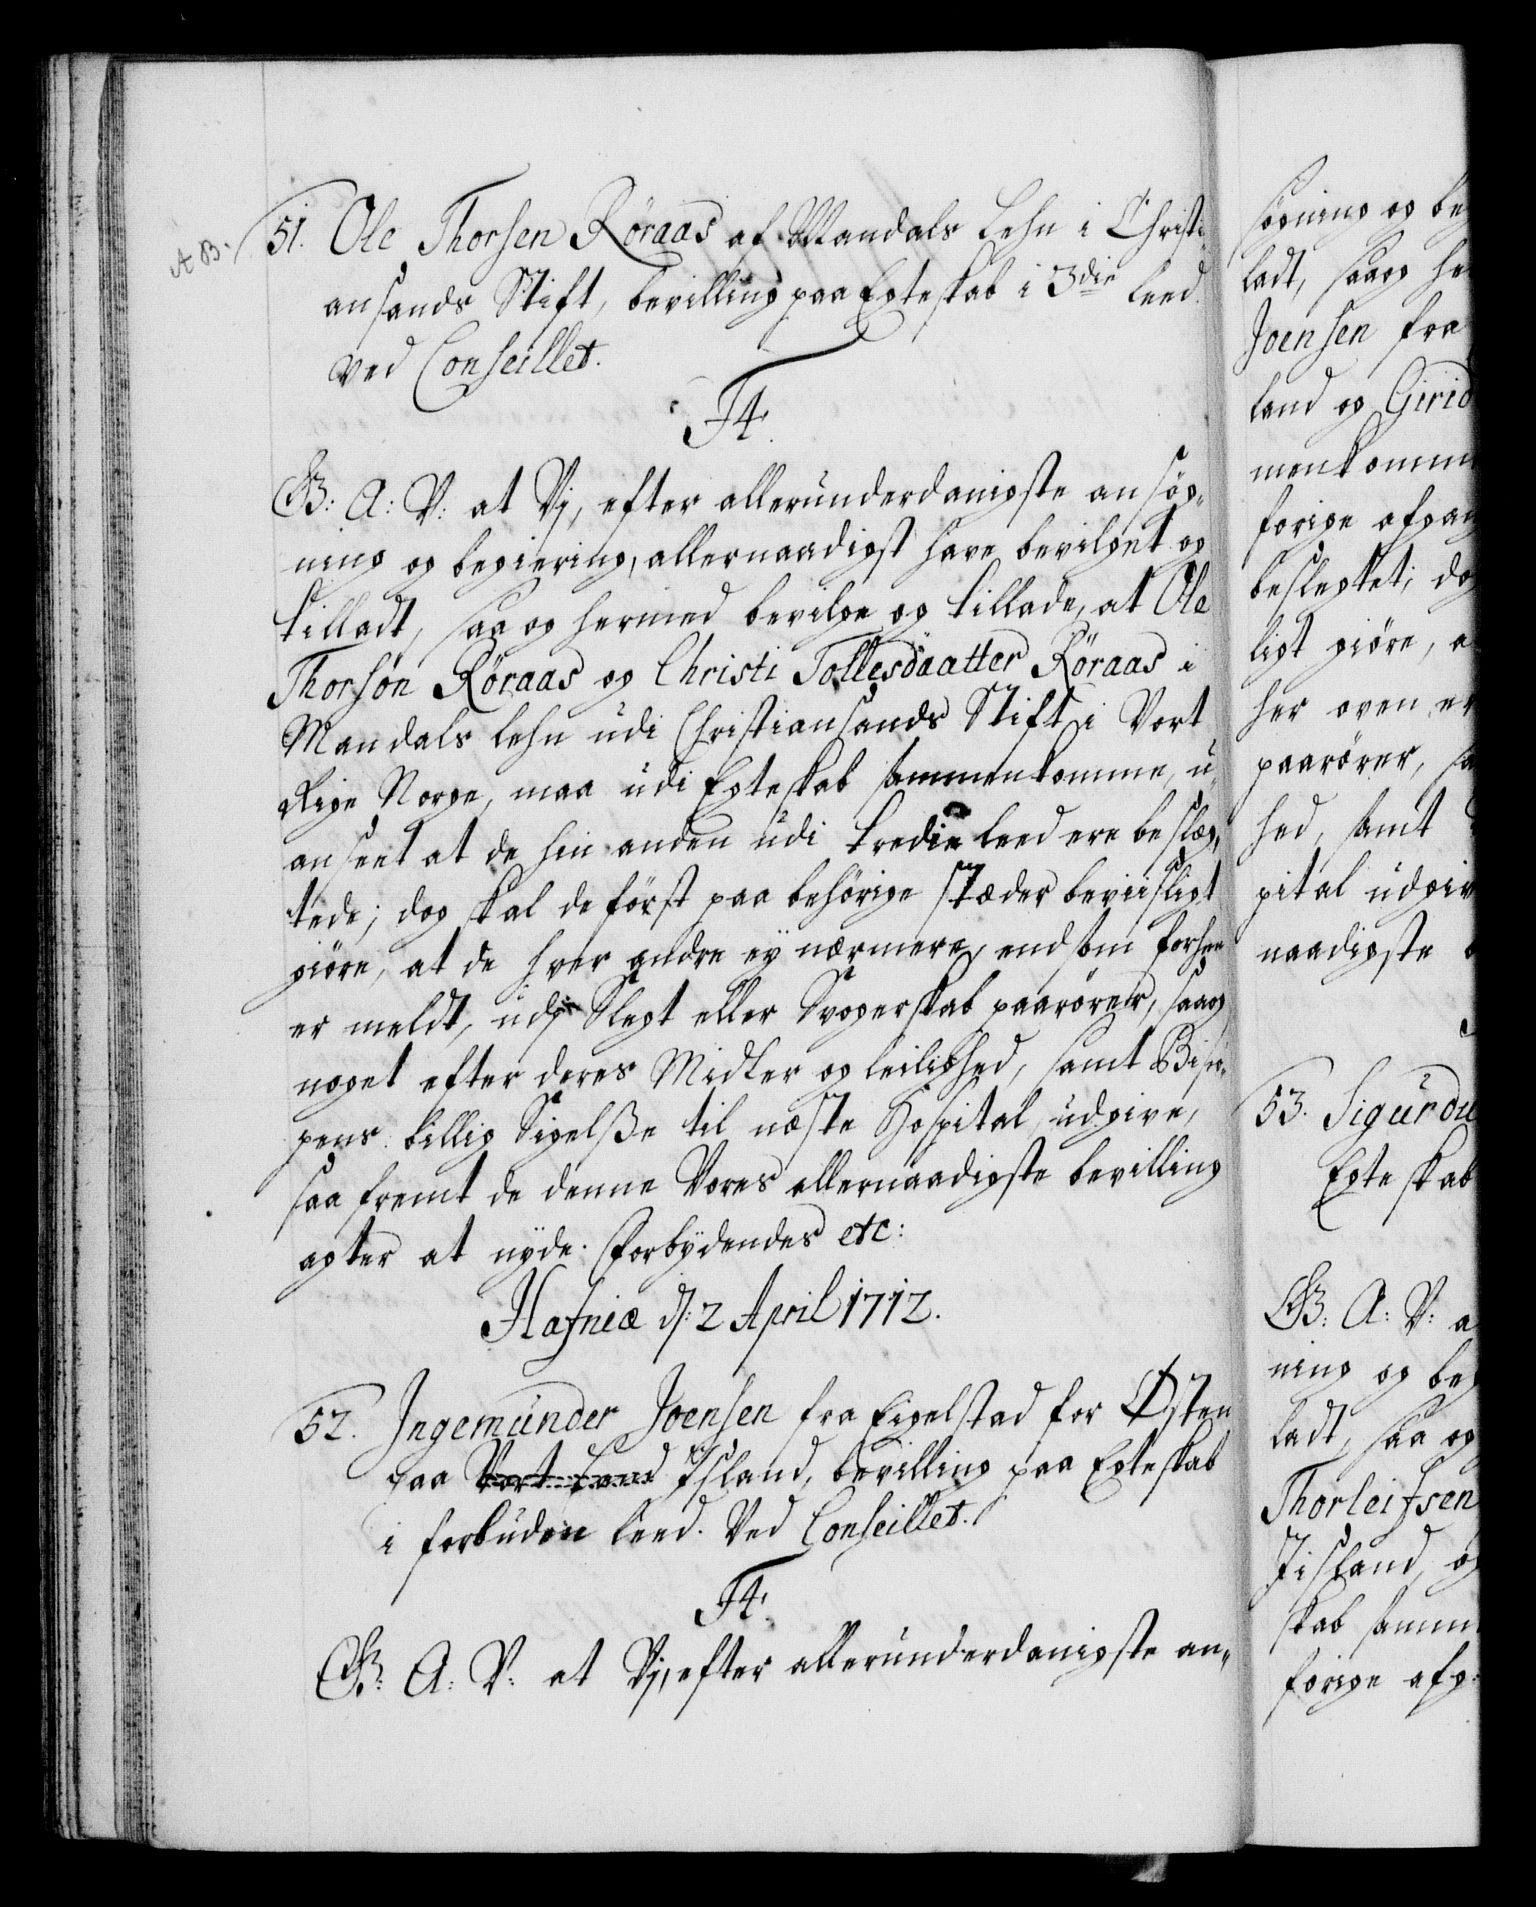 A B.
51. Ole Thorsen Röraas af Mandals Lehn i Christi-
ansands Stift, bevilling paa Egteskab i 3die Leed.
ved Conseillet.
F4.
G: A: V: at Vj, efter allerunderdanigste ansøg-
ning og begiering, allernaadigst have bevilget og
tilladt, saa og hermed bevilge og tillade, at Ole
Thorsøn Röraas og Christi Tollesdaatter Röraas i
Mandals lehn udi Christiansands Stift i Vort
Rige Norge, maa udi Egteskab sammenkomme, u-
anseet at de hin anden udi tredie leed ere beslæg-
tede; dog skal de först paa behörige stæder beviisligt
giöre, at de hver andre ey nærmere, end som forhen
er meldt, udj Slegt eller Svogerskab paarörer, saa og
noget efter deres Midler og leilighed, samt Bisp-
pens billig Sigelße til næste Hospital udgive,
saa fremt de denne Vores allernaadigste bevilling
agter at nyde. Forbydendes etc:
Hafniæ d: 2 April 1712.
52. Ingemunder Joensen fra Eigelstad for Østen
paa Vort Land Island, bevilling paa Egteskab
i forbuden leed. Ved Conseillet.
F4.
G: A: V: at Vj, efter allerunderdanigste an-
søgning og be
ladt, saa og he
Joensen fra
land og Girid
menkomm
forige afgan
beslegtet; dog
ligt giöre, a
her oven er
paarörer, sa
hed, samt
pital udgiv
naadigste
53. Sigurdu
Egteskab
G: A: V: a
ning og beg
ladt, saa og
Thorleifsen
Jisland, og
skab samm
forige afg